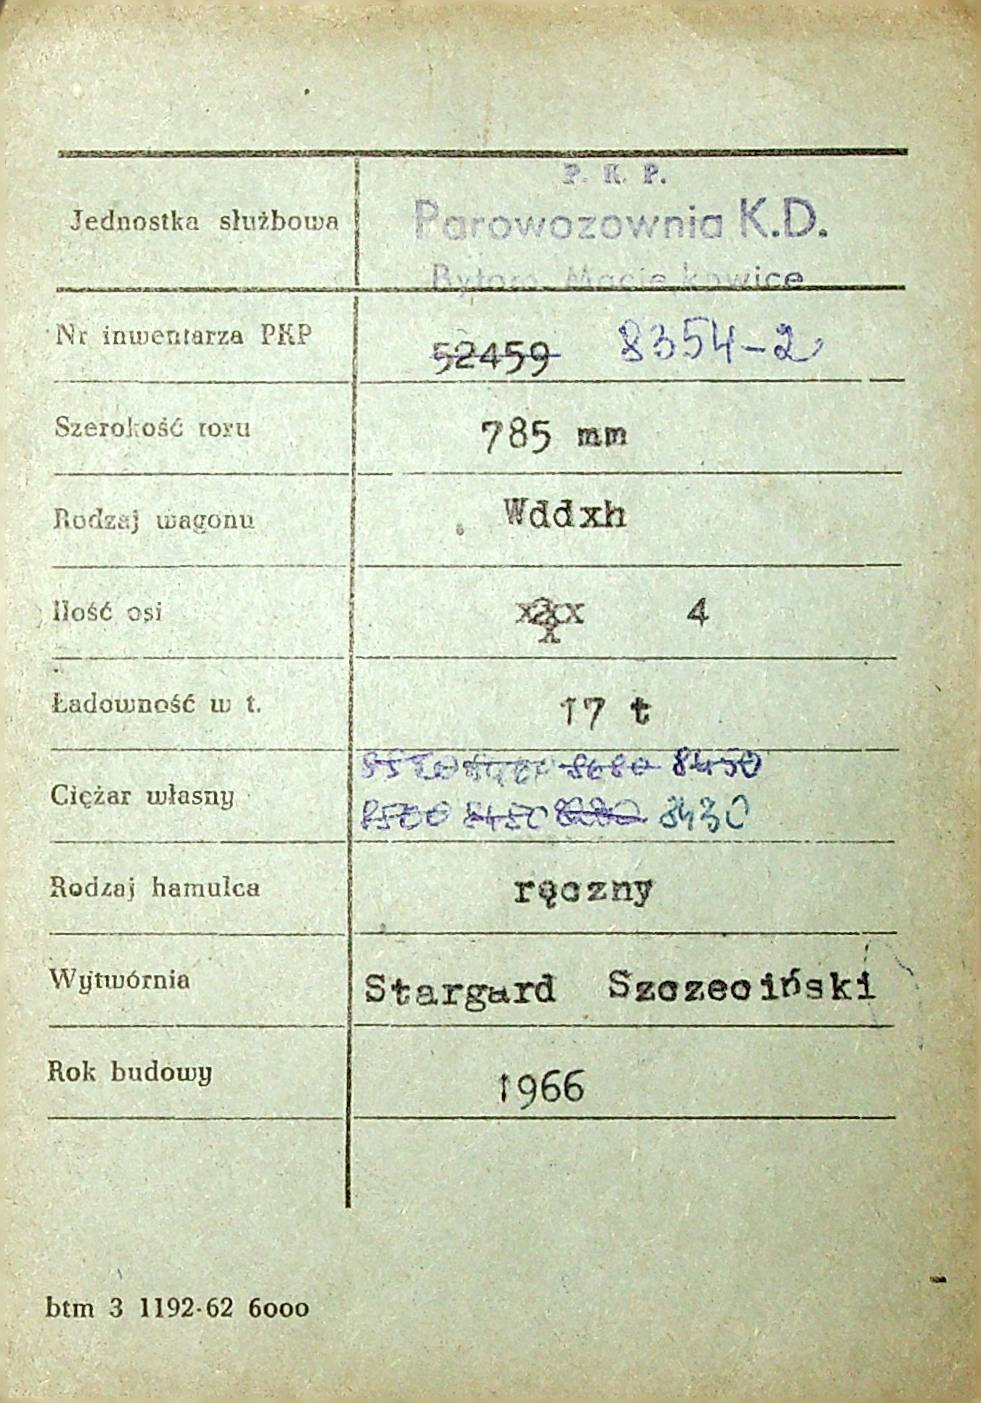 P. K. P.
Jednostka służbowa Parowozownia K.D.
Bytom Maciejkowice
Nr inwentarza PKP 52459 8354-2
Szerokość toru 785 mm
Rodzaj wagonu Wddxh
Ilość osi 4
Ładowność w t. 17 t
8680 8450
Ciężar własny
8500 8450 8430
Rodzaj hamulca ręczny
Wytwórnia Stargard Szczeciński
Rok budowy 1966
btm 3 1192-62 6000